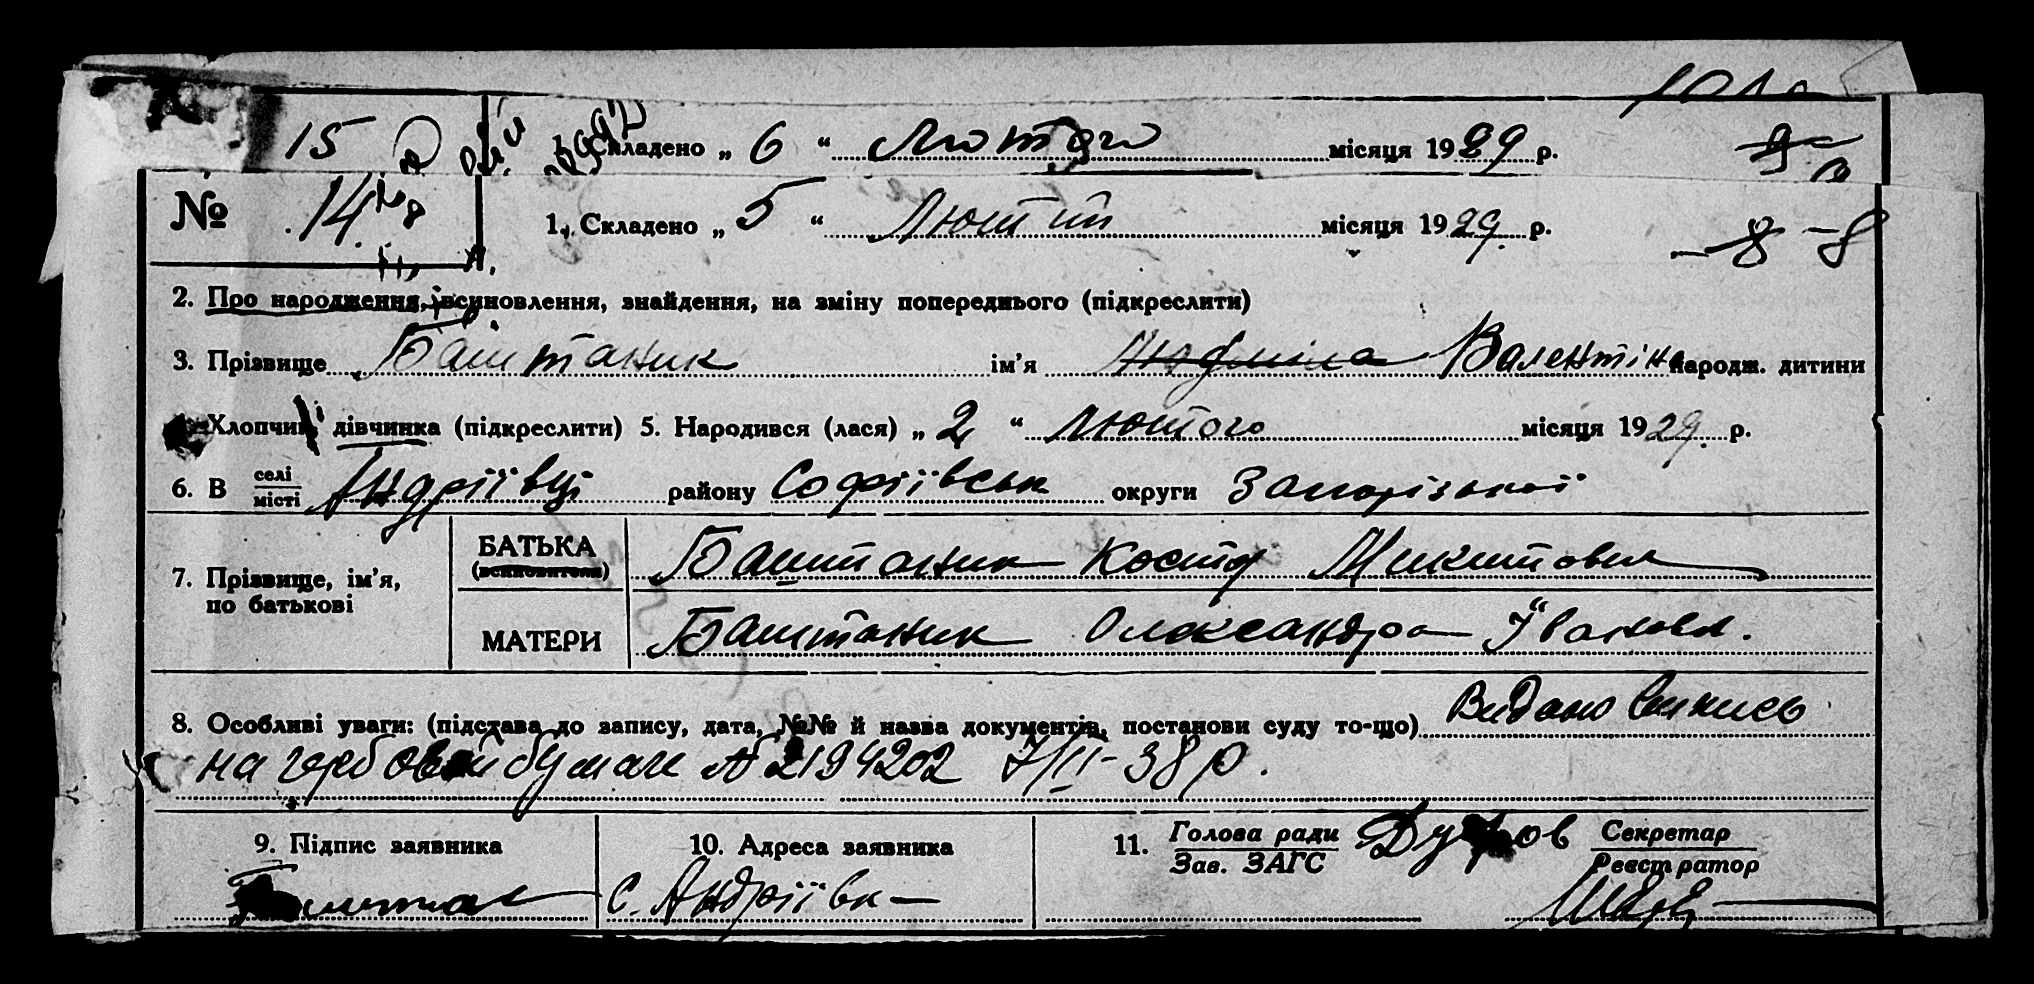 15 1. Складено „ 6 “ Лютого місяця 1929 р. 9
№ 14 1. Складено „ 5 “ Лютий місяця 1929 р. – 8 – 8
2. Про народження, всиновлення, знайдення, на зміну попереднього (підкреслити)
3. Прізвище Баштаник ім’я Людміла Валентіна народж. дитини
Хлопчик, дівчинка (підкреслити) 5. Народився (лася) „ 2 “ лютого місяця 1929 р.
6. В селі місті Андріївці району Софіївськ округи Запорізької
7. Прізвище, ім’я, по батькові
БАТЬКА (всиновителя) Баштаник Костя Микитович
МАТЕРИ Баштаник Олександра Іванівн.
8. Особливі уваги: (підстава до запису, дата, №№ й назва документів, постанови суду то-що) Видано выпись
на гербовой бумаге № 2194202 7/II-38 р.
9. Підпис заявника 10. Адреса заявника 11. Голова ради Зав. ЗАГС Секретар Реєстратор
с. Андріївк